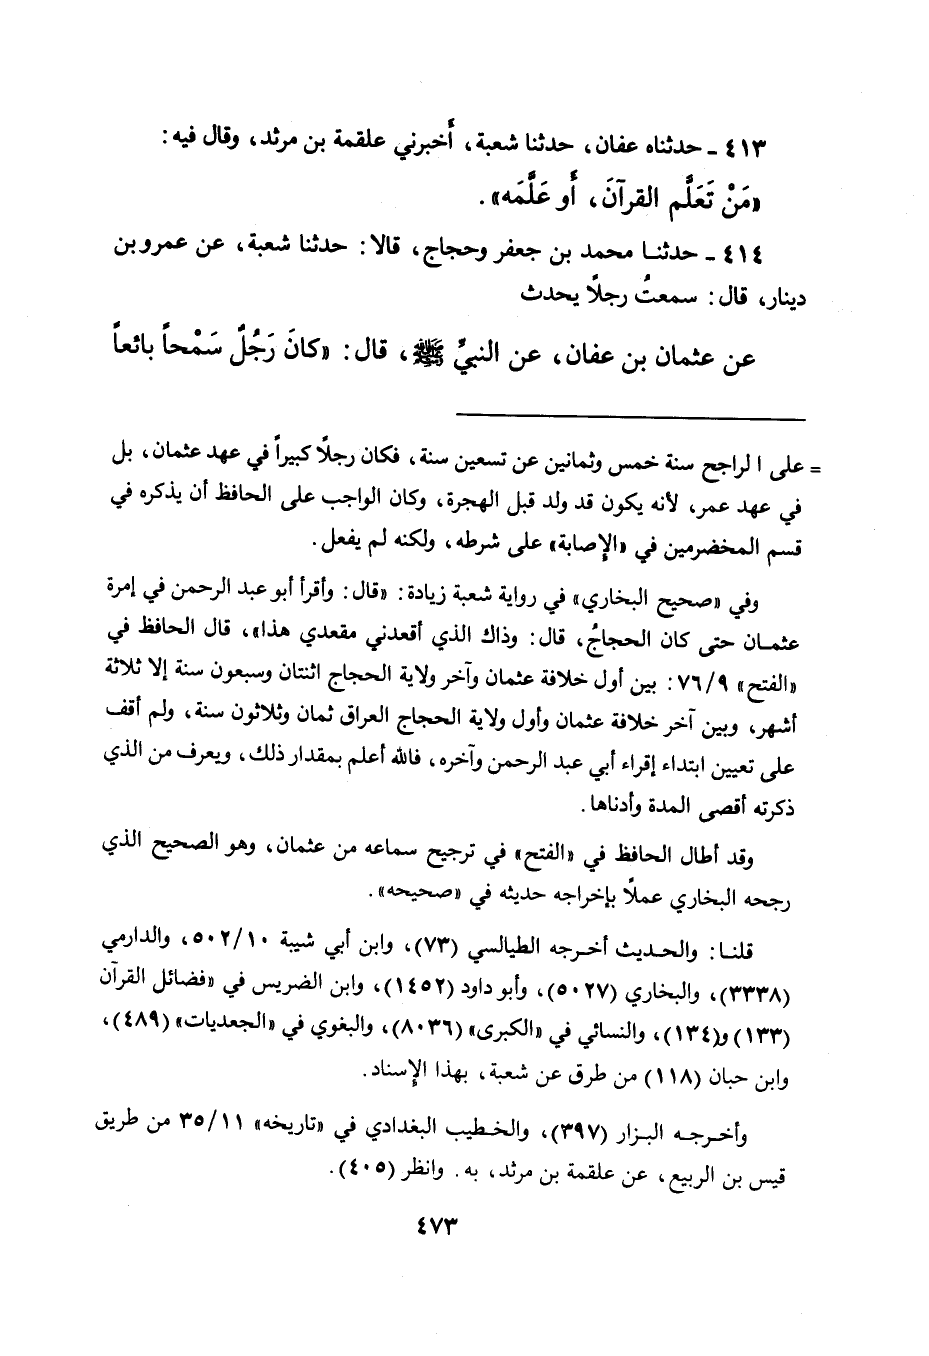 ٤١٣ ـ حدثناه عفان، حدثنا شعبة، أَخبرني علقمة بن مرثد، وقال فيه:
«مَنْ تَعَلَّم القرآنَ، أَو عَلَّمَه».
٤١٤ ـ حدثنـا محمد بن جعفر وحجاج، قالا: حدثنا شعبة، عن عمرو بن
دينار، قال: سمعتُ رجلًا يحدث
عن عثمان بن عفان، عن النبيِّ ﷺ، قال: «كانَ رَجُلٌ سَمْحاً بائعاً
= على الراجح سنة خمس وثمانين عن تسعين سنة، فكان رجلًا كبيراً في عهد عثمان، بل
في عهد عمر، لأنه يكون قد ولد قبل الهجرة، وكان الواجب على الحافظ أن يذكره في
قسم المخضرمين في «الإصابة» على شرطه، ولكنه لم يفعل.
وفي «صحيح البخاري» في رواية شعبة زيادة: «قال: وأقرأ أبو عبد الرحمن في إمرة
عثمـان حتى كان الحجاجُ، قال: وذاك الذي أقعدني مقعدي هذا»، قال الحافظ في
«الفتح» ٧٦/٩: بين أول خلافة عثمان وآخر ولاية الحجاج اثنتان وسبعون سنة إلا ثلاثة
أشهر، وبين آخر خلافة عثمان وأول ولاية الحجاج العراق ثمان وثلاثون سنة، ولم أقف
على تعيين ابتداء إقراء أبي عبد الرحمن وآخره، فالله أعلم بمقدار ذلك، ويعرف من الذي
ذكرته أقصى المدة وأدناها.
وقد أطال الحافظ في «الفتح» في ترجيح سماعه من عثمان، وهو الصحيح الذي
رجحه البخاري عملًا بإخراجه حديثه في «صحيحه».
قلنـا: والحـديث أخـرجه الطيالسي (٧٣)، وابن أبي شيبة ٥٠٢/١٠، والدارمي
(٣٣٣٨)، والبخاري (٥٠٢٧)، وأبو داود (١٤٥٢)، وابن الضريس في «فضائل القرآن
(١٣٣) و(١٣٤)، والنسائي في «الكبرى» (٨٠٣٦)، والبغوي في «الجعديات» (٤٨٩)،
وابن حبان (١١٨) من طرق عن شعبة، بهذا الإسناد.
وأخـرجـه البـزار (٣٩٧)، والخـطيب البغدادي في «تاريخه» ٣٥/١١ من طريق
قيس بن الربيع، عن علقمة بن مرثد، به. وانظر (٤٠٥).
٤٧٣